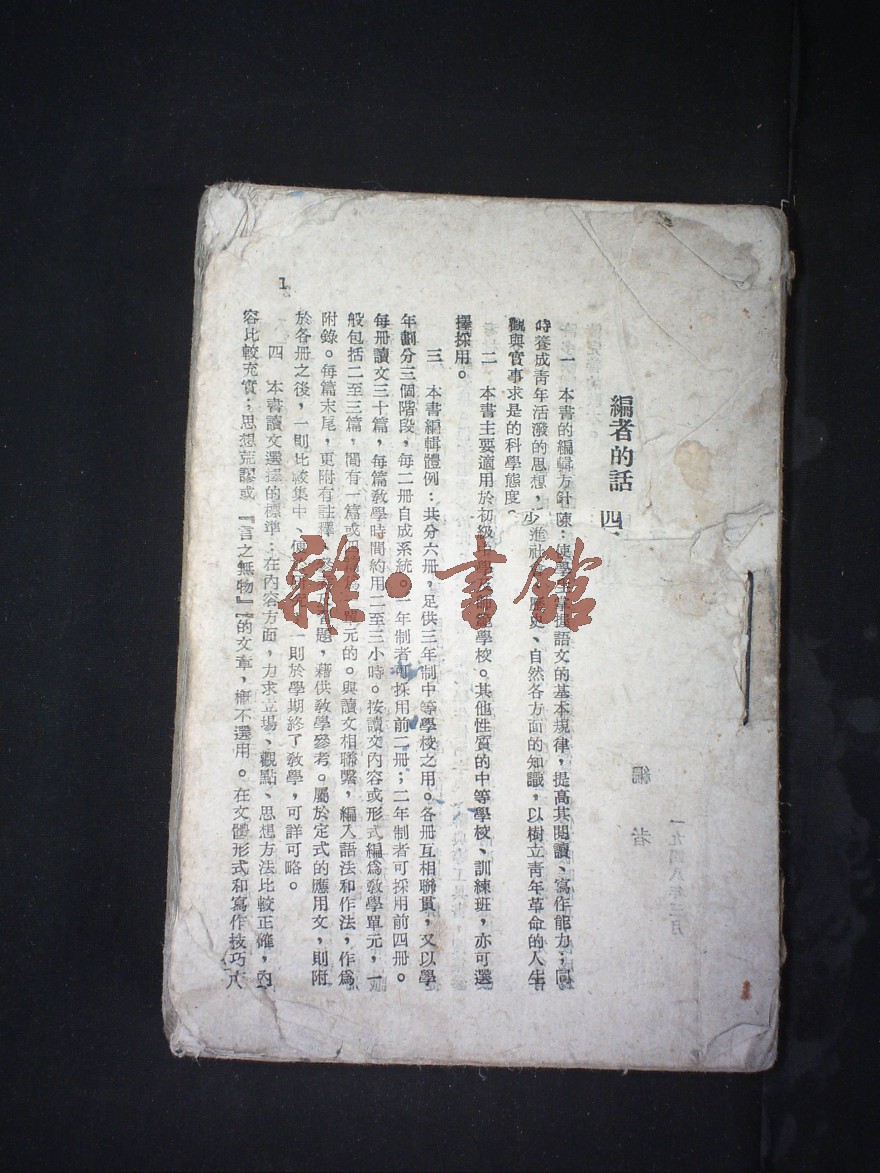 編者的話
四
一 本書的編輯方針 使學生掌握語文的基本規律，提高其閱讀、寫作能力；同
時養成青年活潑的思想， 進社 歷史、自然各方面的知識，以樹立青年革命的人生
觀與實事求是的科學態度。
二 本書主要適用於初級中學 師範學校。其他性質的中等學校、訓練班，亦可選
擇採用。
三 本書編輯體例：共分六冊，足供三年制中等學校之用。各冊互相聯貫，又以學
年劃分三個階段，每二冊自成系統。一年制者可採用前二冊；二年制者可採用前四冊。
每冊讀文三十篇，每篇教學時間約用二至三小時。按讀文內容或形式編爲教學單元，一
般包括二至三篇，間有一篇或四 單元的。與讀文相聯繫，編入語法和作法，作爲
附錄。每篇末尾，更附有註釋 題，藉供教學參考。屬於定式的應用文，則附
於各冊之後，一則比較集中、便 一則於學期終了教學，可詳可略。
四 本書讀文選擇的標準：在內容方面，力求立場、觀點、思想方法比較正確，內
容比較充實；思想荒謬或『言之無物』的文章，概不選用。在文體形式和寫作技巧方
1
編者
一九四八年二月
雜·書館